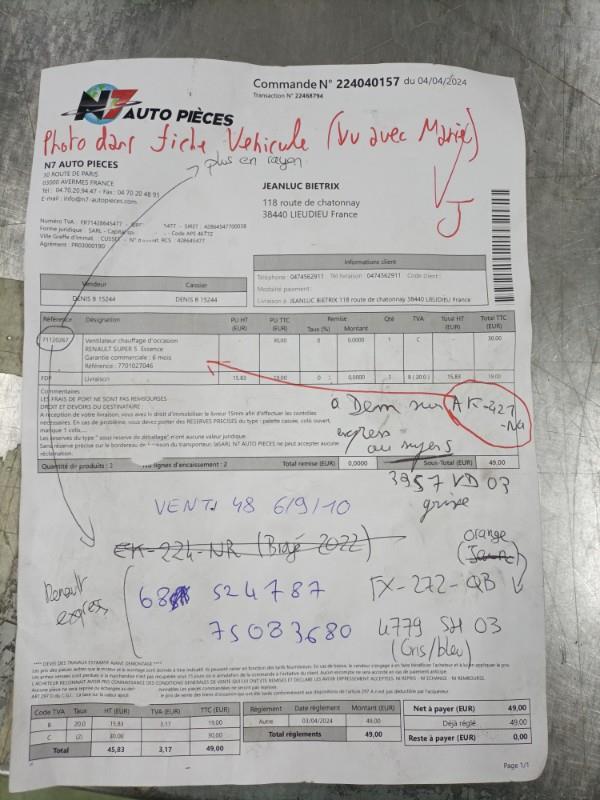 Commande N° 224040157 du 04/04/2024
Transaction N° 22468794
N7 AUTO PIÈCES
Photo dans fiche Véhicule (vu avec Marie)
J
plus en rayon
N7 AUTO PIECES
30 ROUTE DE PARIS
03000 AVERMES FRANCE
Tél : 04.70.20.94.47 - Fax : 04 70 20 48 91
E-mail : info@n7-autopieces.com
JEANLUC BIETRIX
118 route de chatonnay
38440 LIEUDIEU France
Numéro TVA : FR71428645477
5477 - SIRET : 42864547700038
Forme juridique : SARL - Capital
Code APE 4677Z
Ville Greffe d'immat. : CUSSET
RCS : 428645477
Agrément : PR0300019D
Informations client
Téléphone : 0474562911 Tél livraison : 0474562911 Code client :
Modalité paiement :
Livraison à : JEANLUC BIETRIX 118 route de chatonnay 38440 LIEUDIEU France
Vendeur Caissier
DENIS B 15244 DENIS B 15244
Référence Désignation PU HT (EUR) PU TTC (EUR) Remise Taux (%) Montant Qté TVA Total HT (EUR) Total TTC (EUR)
71120267 Ventilateur chauffage d'occasion 30,00 0 0,0000 1 C 30,00
RENAULT SUPER 5 Essence
Garantie commerciale : 6 mois
Référence : 7701027046
FDP Livraison 15,83 19,00 0 0,0000 1 B ( 20.0 ) 15,83 19,00
Commentaires
LES FRAIS DE PORT NE SONT PAS REMBOURSES
DROIT ET DEVOIRS DU DESTINATAIRE
A réception de votre livraison, vous avez le droit d'immobiliser le livreur 15mm afin d'effectuer les contrôles
nécessaires. En cas de problème, vous devez porter des RESERVES PRECISES du type : palette cassée, colis ouvert,
manque 1 colis...
Les réserves du type " sous réserve de déballage" n'ont aucune valeur juridique.
Sans réserve précise sur le bordereau de du transporteur, N7 AUTO PIECES ne peut accepter aucune
réclamation.
à Dem sur AK-327-NG
express
Quantité de produits : 2 Nb lignes d'encaissement : 2 Total remise (EUR) 0,0000 Sous-Total (EUR) 49,00
3957 VD 03
grise
VENTI 48 6/9/10
EK-224-NR (Bugé 2022)
orange
(Jaune)
Renault
express
68 524787
FX-272-QB
75083680
4779 SH 03
(Gris/bleu)
**** DEVIS DES TRAVAUX ESTIMATIF AVANT DEMONTAGE ****
Code TVA Taux HT (EUR) TVA (EUR) TTC (EUR)
B 20.0 15,83 3,17 19,00
C (2) 30,00 30,00
Total 45,83 3,17 49,00
Règlement Date règlement Montant (EUR)
Autre 03/04/2024 49,00
Total règlements 49,00
Net à payer (EUR) 49,00
Déjà réglé 49,00
Reste à payer (EUR) 0,00
Page 1/1